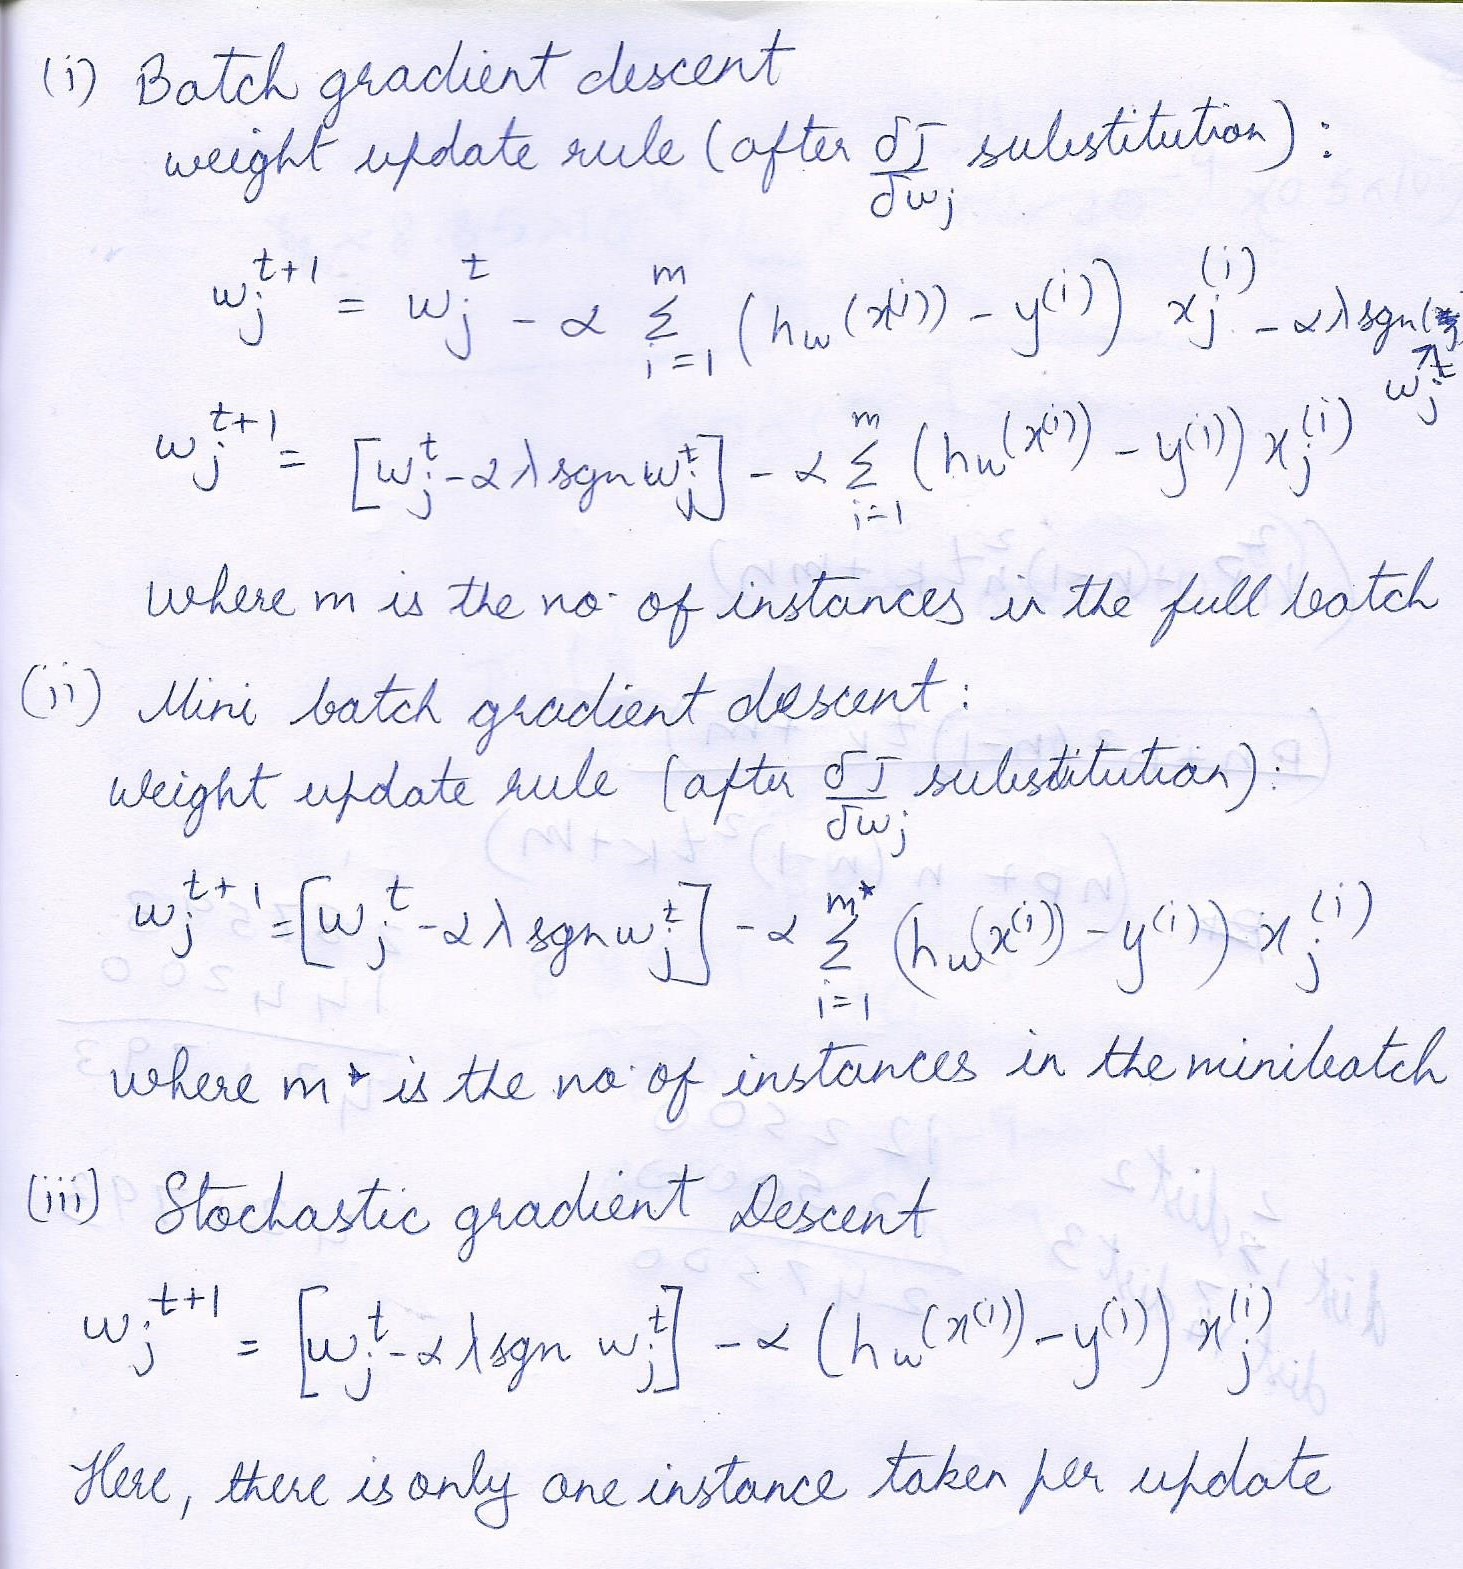 (i) Batch gradient descent
weight update rule (after δJ/δwj substitution):
wj^(t+1) = wj^t - α Σ_(i=1)^m (hw(x^(i)) - y^(i)) xj^(i) - αλ sgn(wj^t
wj^(t+1) = [wj^t - αλ sgn wj^t] - α Σ_(i=1)^m (hw(x^(i)) - y^(i)) xj^(i)
where m is the no. of instances in the full batch
(ii) Mini batch gradient descent:
weight update rule (after δJ/δwj substitution):
wj^(t+1) = [wj^t - αλ sgn wj^t] - α Σ_(i=1)^(m*) (hw(x^(i)) - y^(i)) xj^(i)
where m* is the no. of instances in the minibatch
(iii) Stochastic gradient Descent
wj^(t+1) = [wj^t - αλ sgn wj^t] - α (hw(x^(i)) - y^(i)) xj^(i)
Here, there is only one instance taken per update